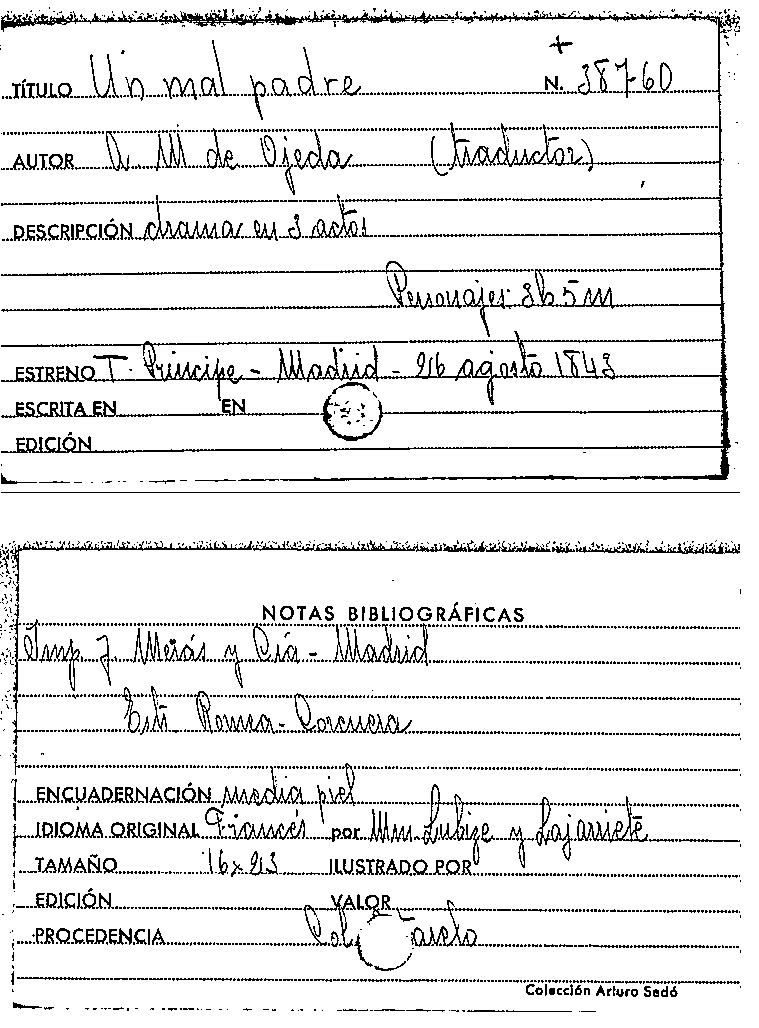 +
TÍTULO Un mal padre N. 38760
AUTOR A. M de Ojeda (traductor)
DESCRIPCIÓN drama en 3 actos
Personajes 3h 5m
ESTRENO T. Principe - Madrid - 26 agosto 1843
ESCRITA EN EN
EDICIÓN
NOTAS BIBLIOGRÁFICAS
Imp J. y Cía - Madrid
Romea - Corcuera
ENCUADERNACIÓN media piel
IDIOMA ORIGINAL Francés por Mm. Lubize y
TAMAÑO 16x23 ILUSTRADO POR
EDICIÓN VALOR
PROCEDENCIA Col.
Colección Arturo Sedó